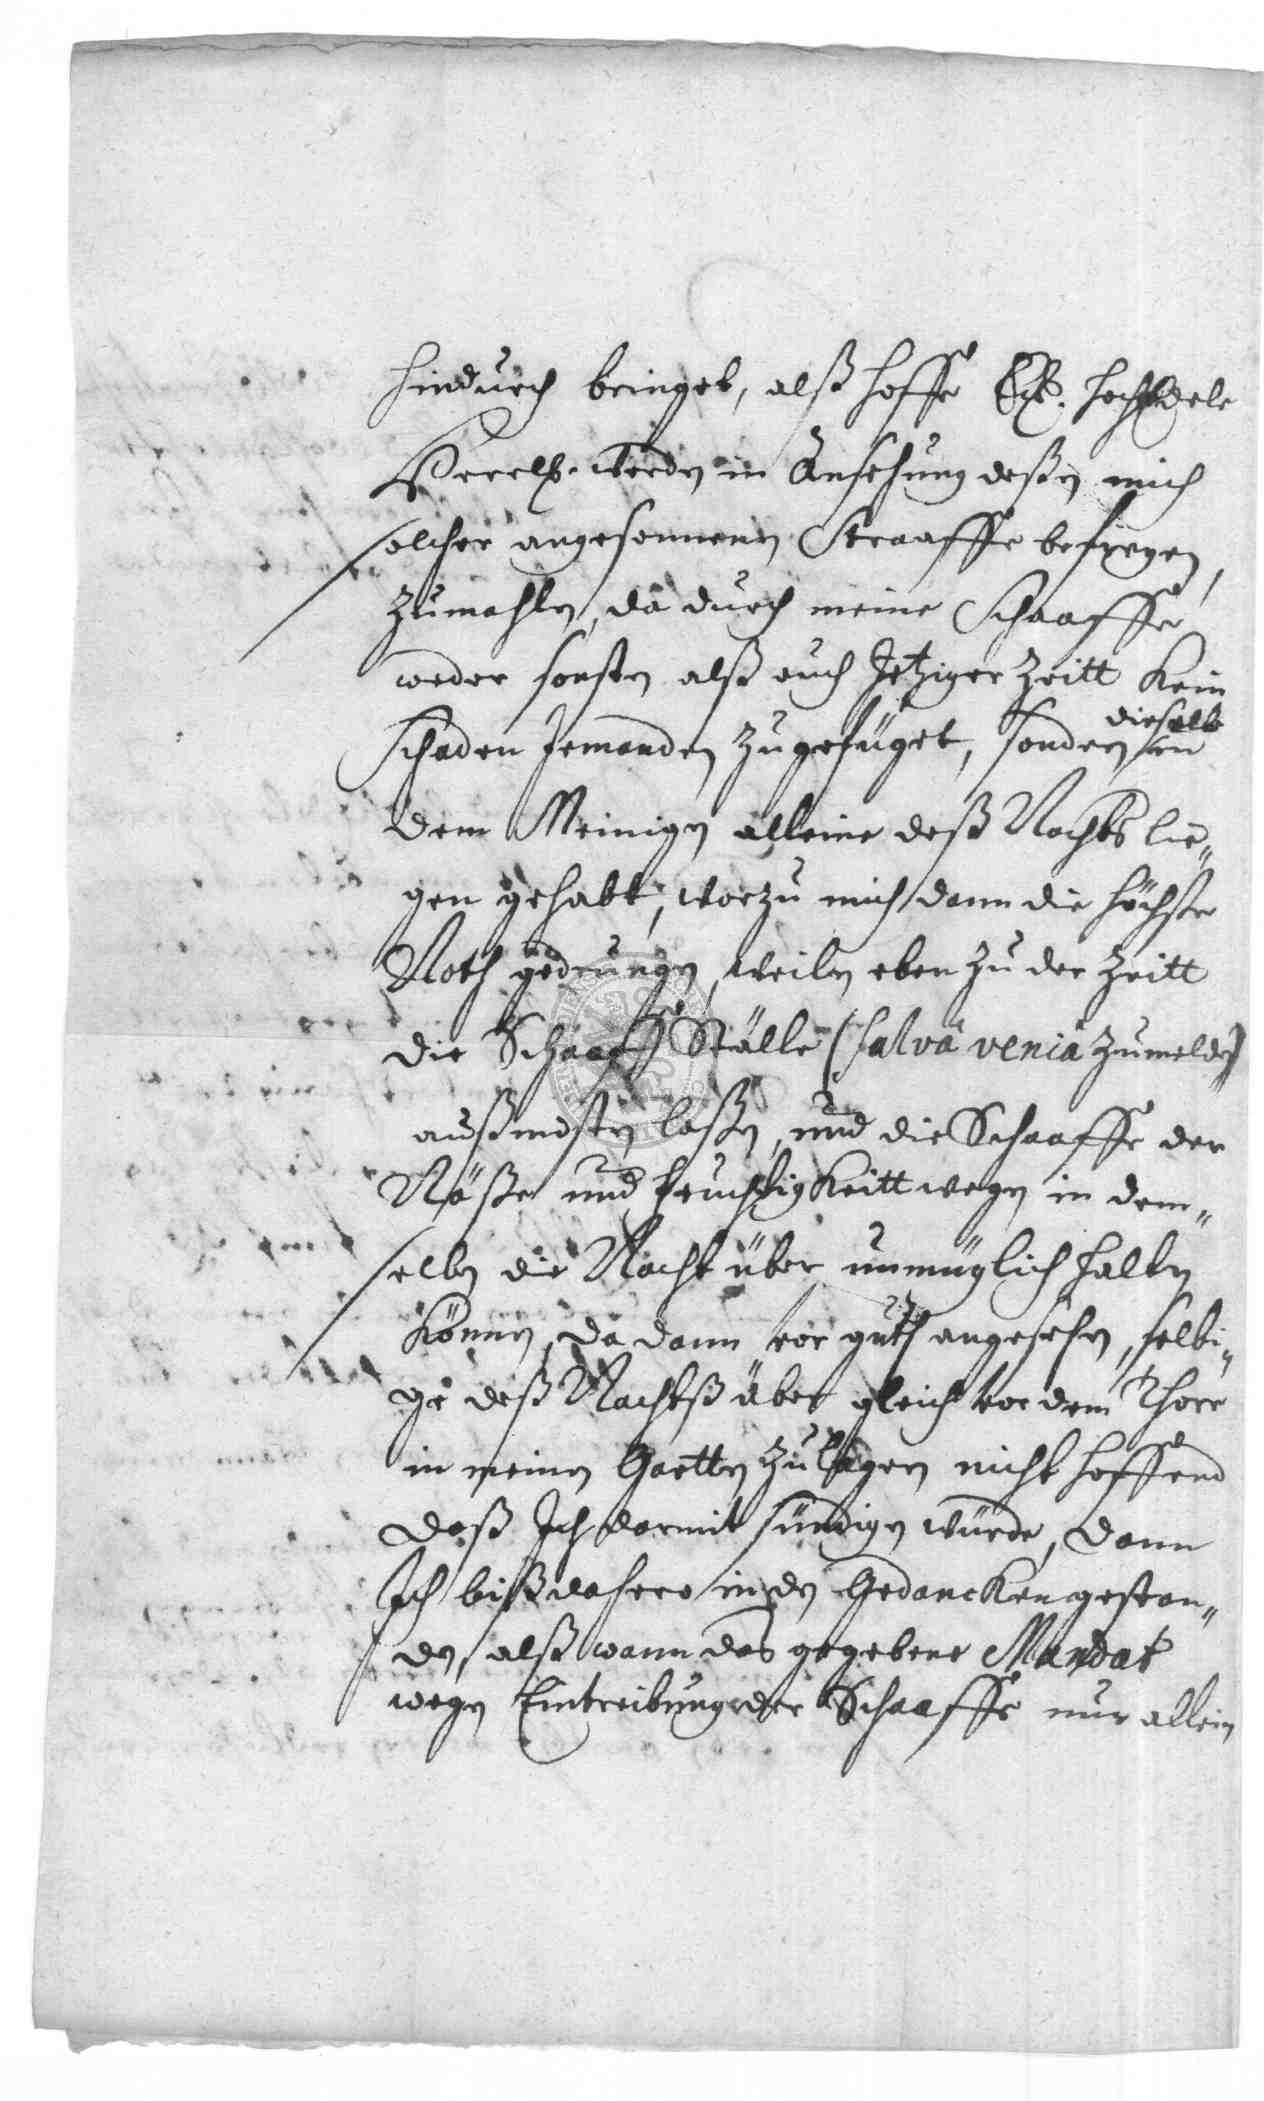 hindurch bringet, alß hoffe Ew. HochEdele
Herrl. werden in Ansehung deßen mich
solcher angesonnenen Straaffe befreyen,
zumahlen, da durch meine Schaaffe
weder sonsten alß auch Jetziger Zeitt Kein
dieselbe
Schaden Jemanden zugefüget, sondern in
dem Meinigen alleine deß Nachts lie„
gen gehabt, worzu mich dann die höchste
Noth gedrungen, weilen eben zu der Zeitt
die Schaaff Ställe (salvâ veniâ zumelden)
außmisten laßen, und die Schaaffe der
Näße und feuchtigkeitt wegen in dem„
selben die Nacht über unmüglich halten
können, da dann vor guth angesehen, selbi„
ge deß Nachtß über gleich vor dem Thore
in meinen Gartten zu lagern nicht hoffend
daß Ich darmit sündigen würde, dann
Ich biß dahero in den Gedancken gestan„
den, alß wann das gegebene Mandat
wegen Eintreibung der Schaaffe nur allein